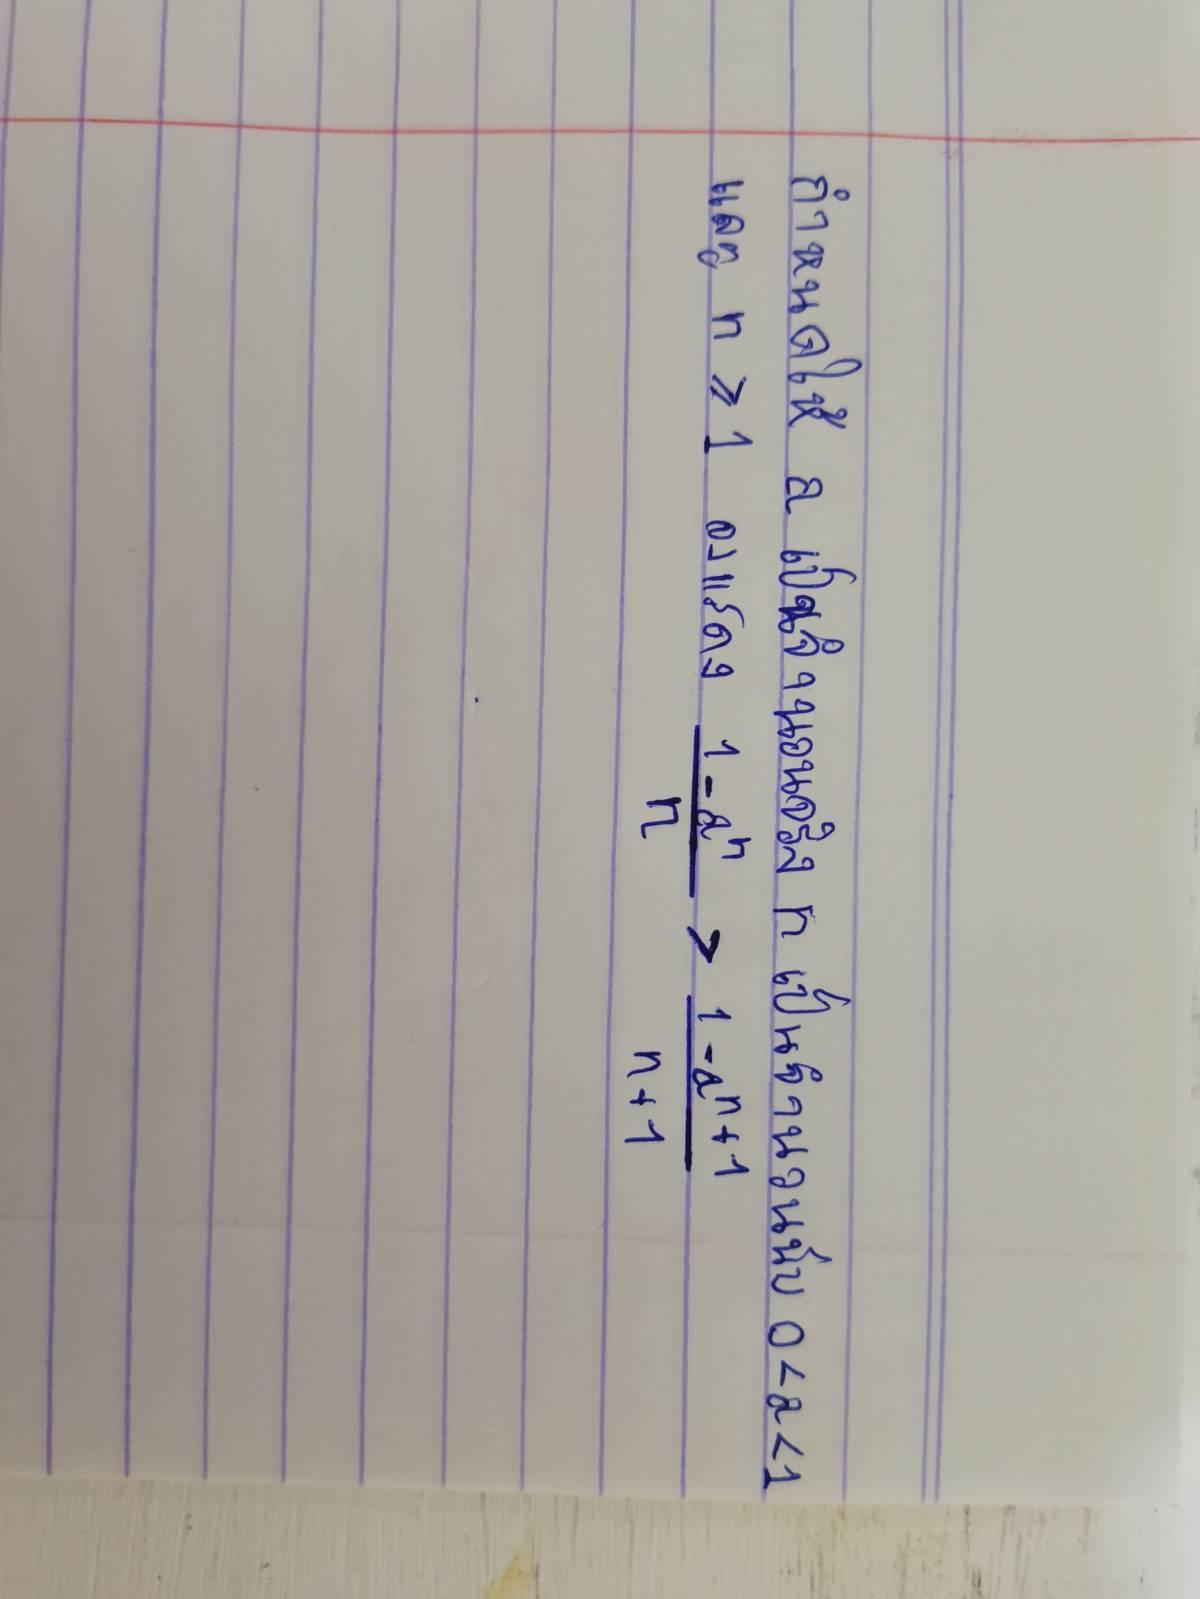 กำหนดให้ a เป็นจำนวนจริง n เป็นจำนวนนับ 0 < a < 1
และ n > 1 จงแสดง 1 - a^n / n > 1 - a^n+1 / n + 1